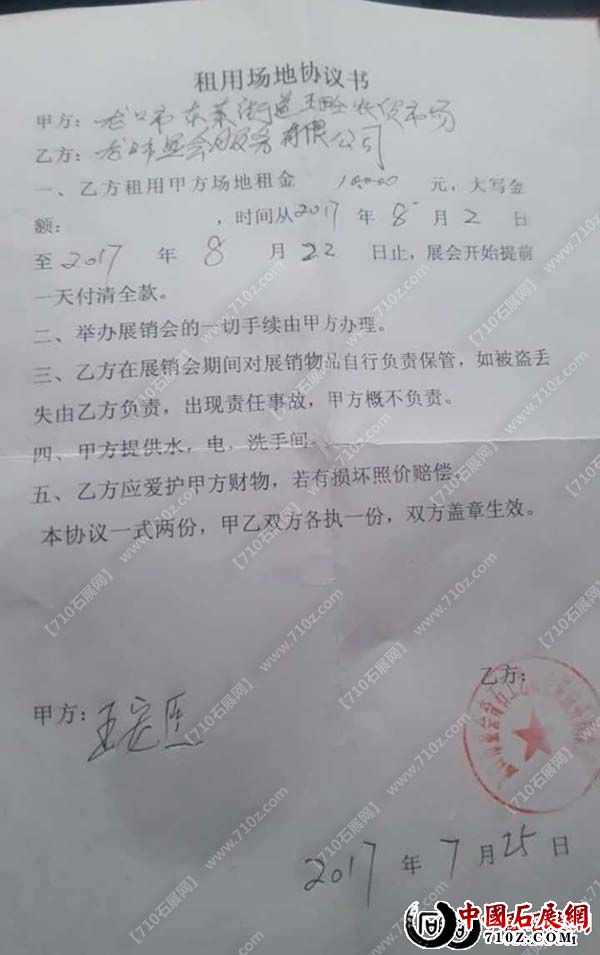 租用场地协议书
甲方：龙口市东莱街道 农贸市场
乙方：龙口市 会服务有限公司
一、乙方租用甲方场地租金 10000 元，大写金
额： ，时间从2017 年 8 月 2 日
至 2017 年 8 月 22 日止，展会开始提前
一天付清全款。
二、举办展销会的一切手续由甲方办理。
三、乙方在展销会期间对展销物品自行负责保管，如被盗丢
失由乙方负责，出现责任事故，甲方概不负责。
四、甲方提供水，电，洗手间。
五、乙方应爱护甲方财物，若有损坏照价赔偿，
本协议一式两份，甲乙双方各执一份，双方盖章生效。
乙方：
甲方：王
2017 年 7 月 25 日
中國石展網
710Z.COM
【710石展网】 www.710z.com